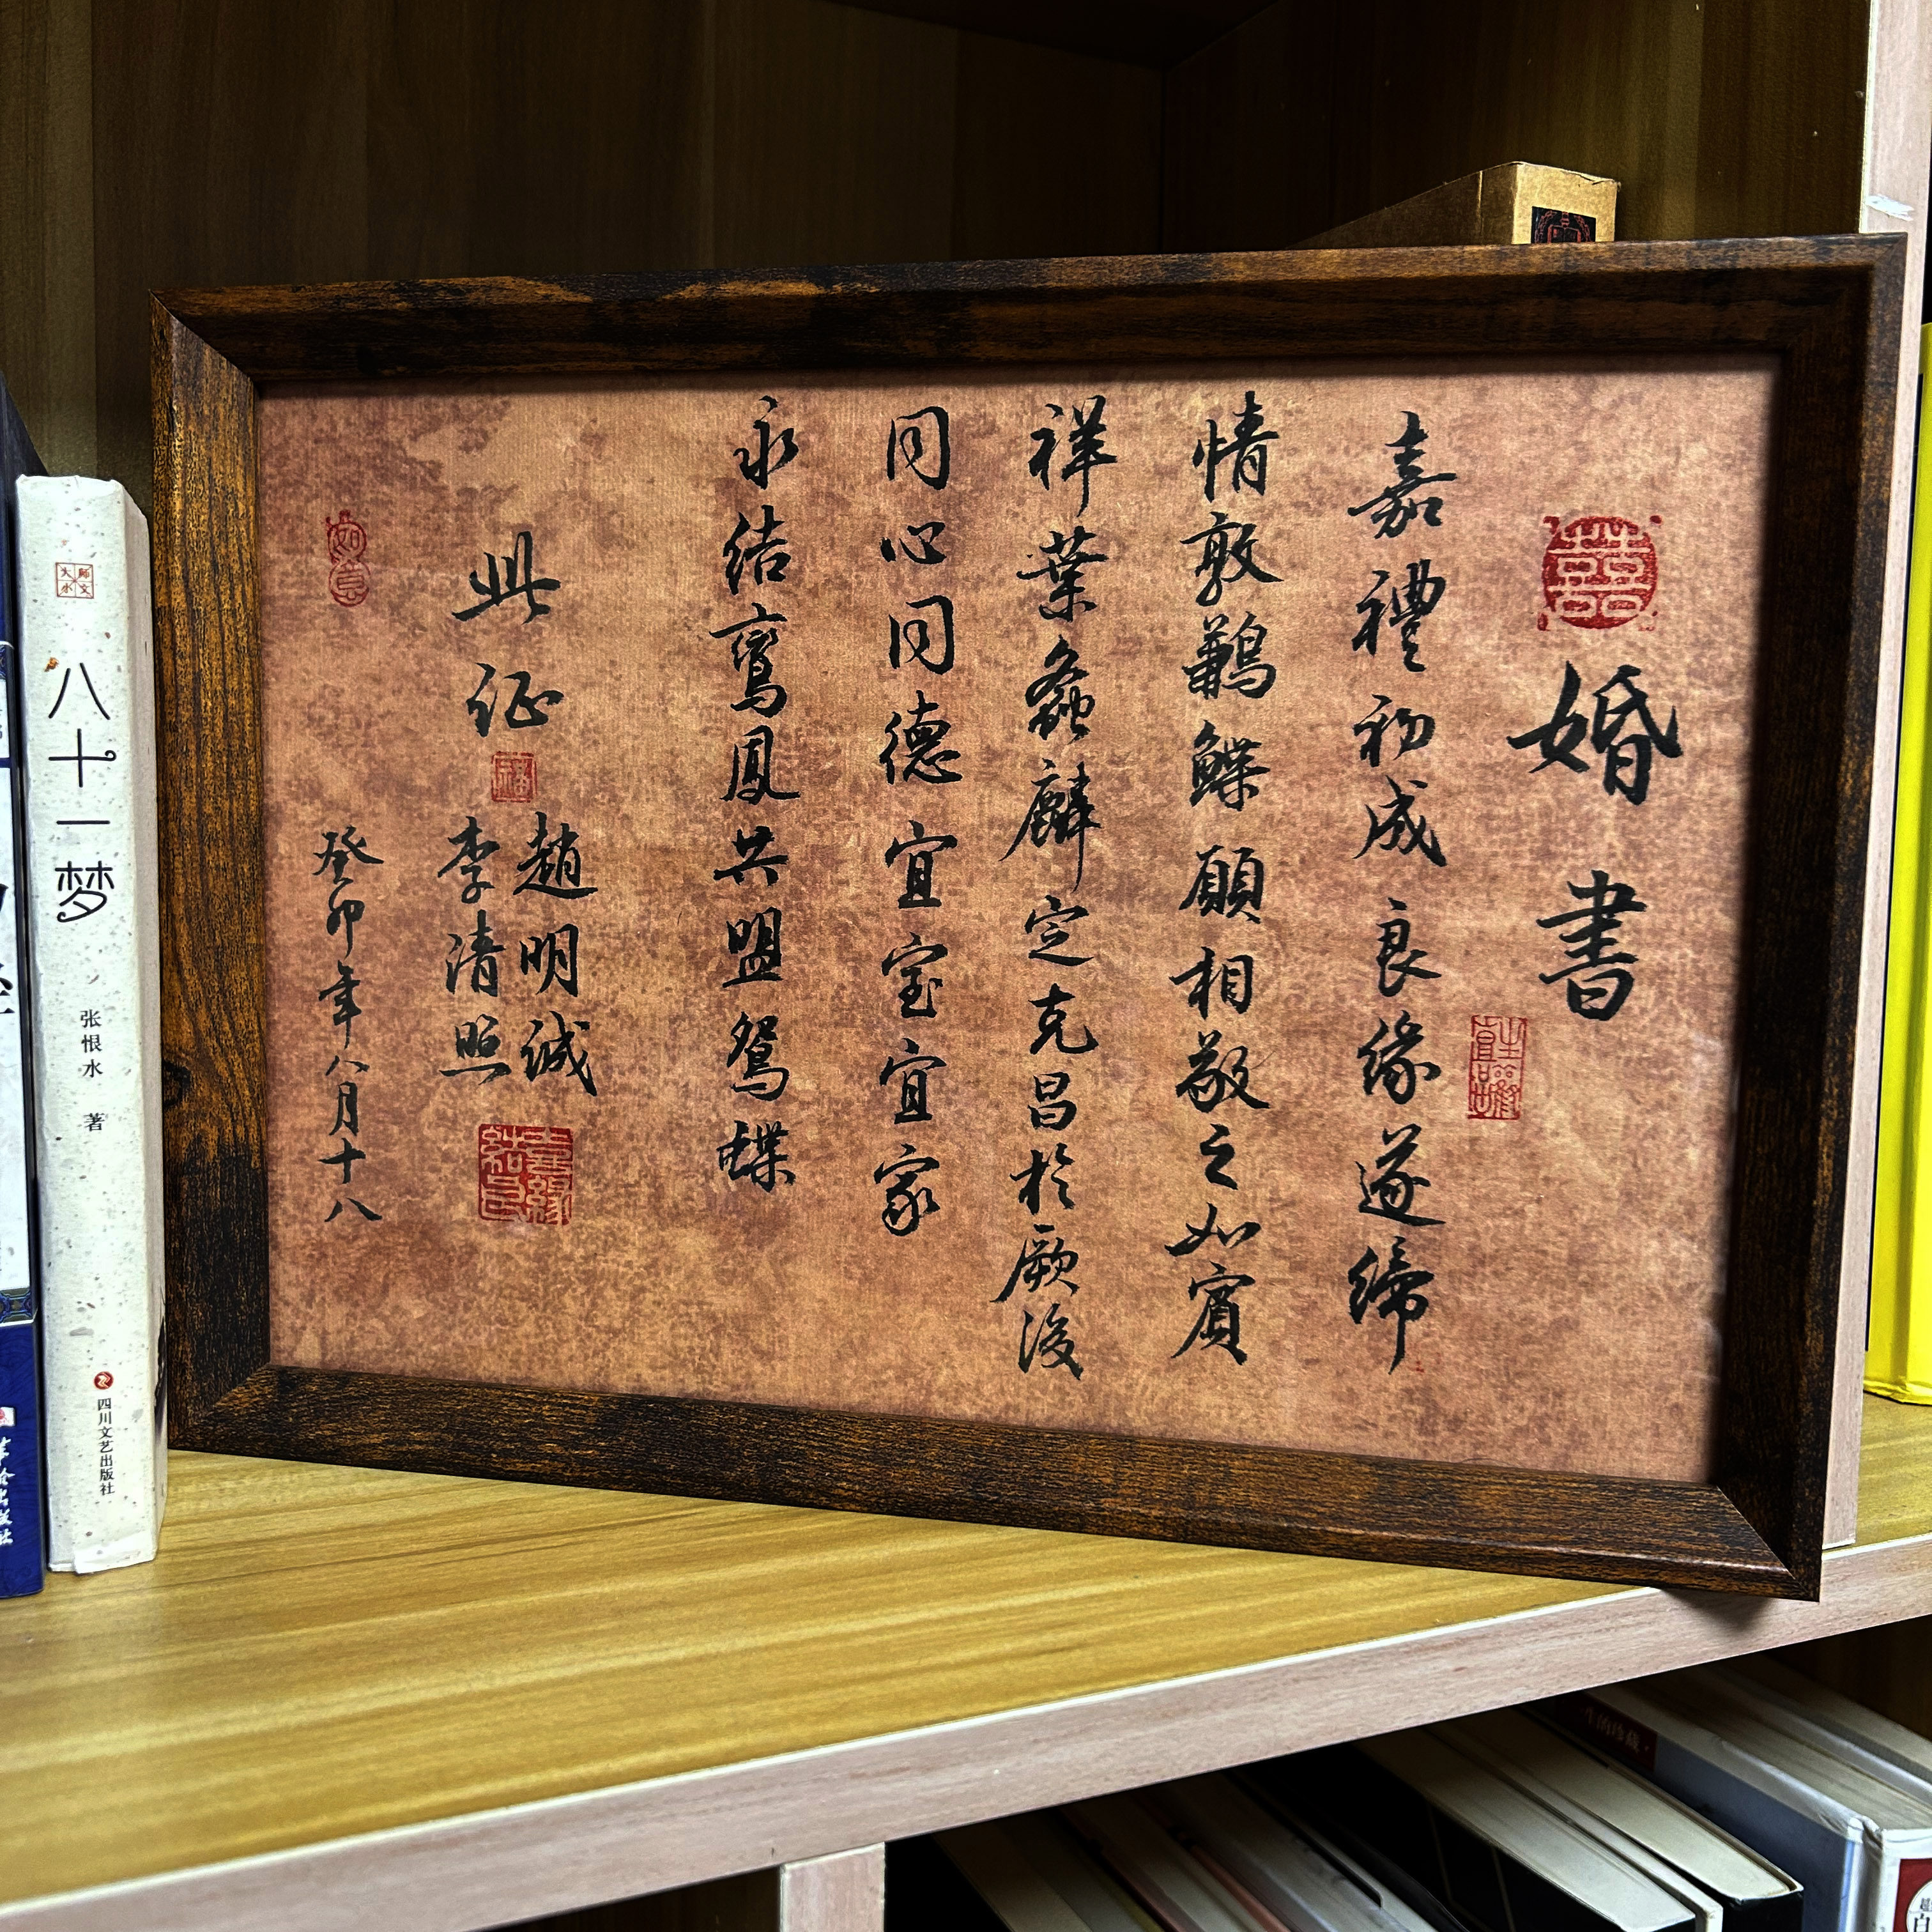 婚書
囍
嘉禮初成良緣遂締
情敦鶼鰈願相敬之如賓
祥葉螽麟定克昌於厥後
同心同德宜室宜家
永結鸞鳳共盟鴛蝶
此征
趙明誠
李清照
癸卯年八月十八
如意
八十一梦
张恨水 著
四川文艺出版社